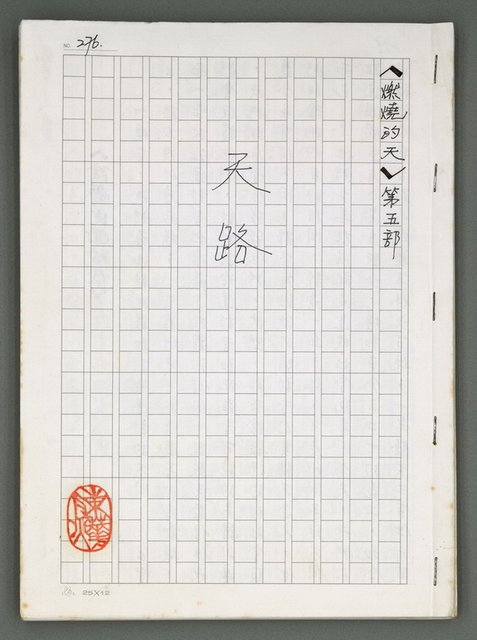 NO. 276.
〈燃燒的天〉第五部
天路
25X12